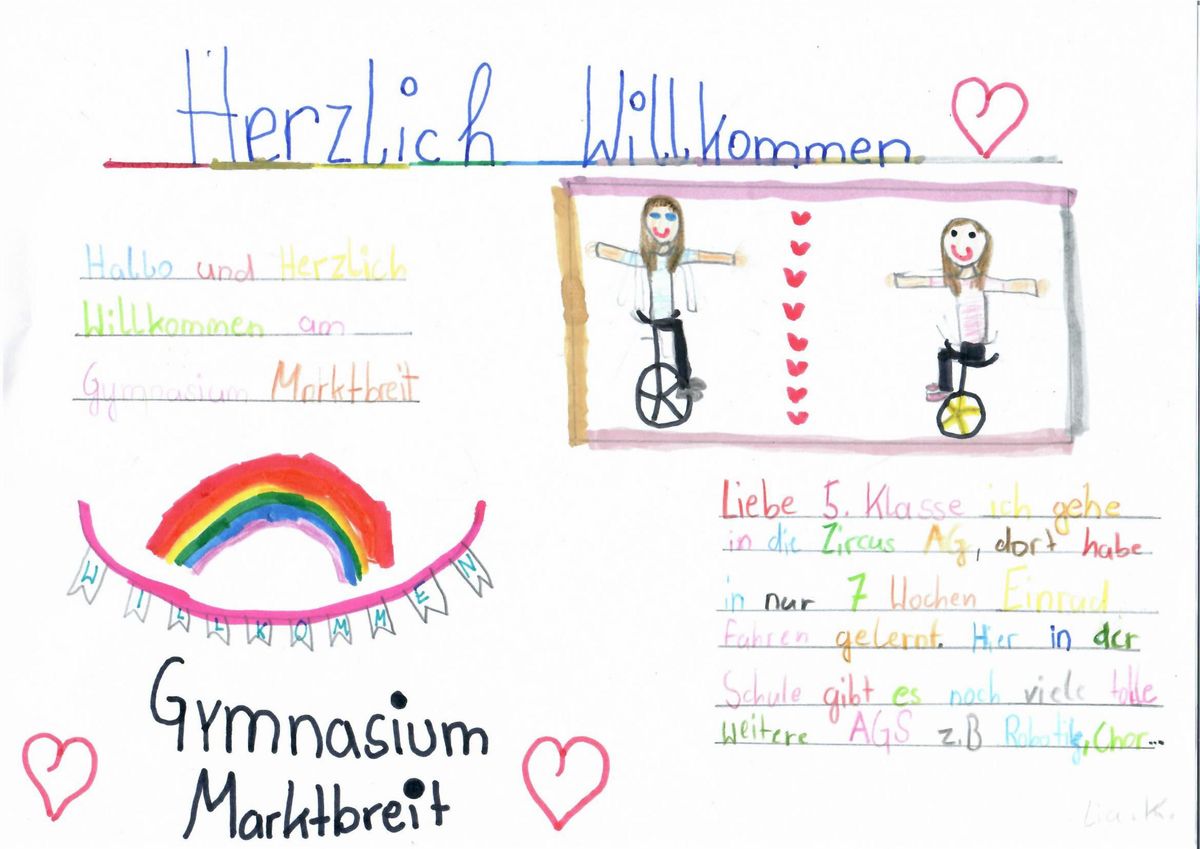 Herzlich Willkommen
Hallo und Herzlich
Willkommen am
Gymnasium Marktbreit
WILLKOMMEN
Gymnasium
Marktbreit
Liebe 5. Klasse ich gehe
in die Zircus AG, dort habe
in nur 7 Wochen Einrad
fahren gelernt. Hier in der
Schule gibt es noch viele tolle
weitere AGS z.B Robotik, Chor...
Lia.K.